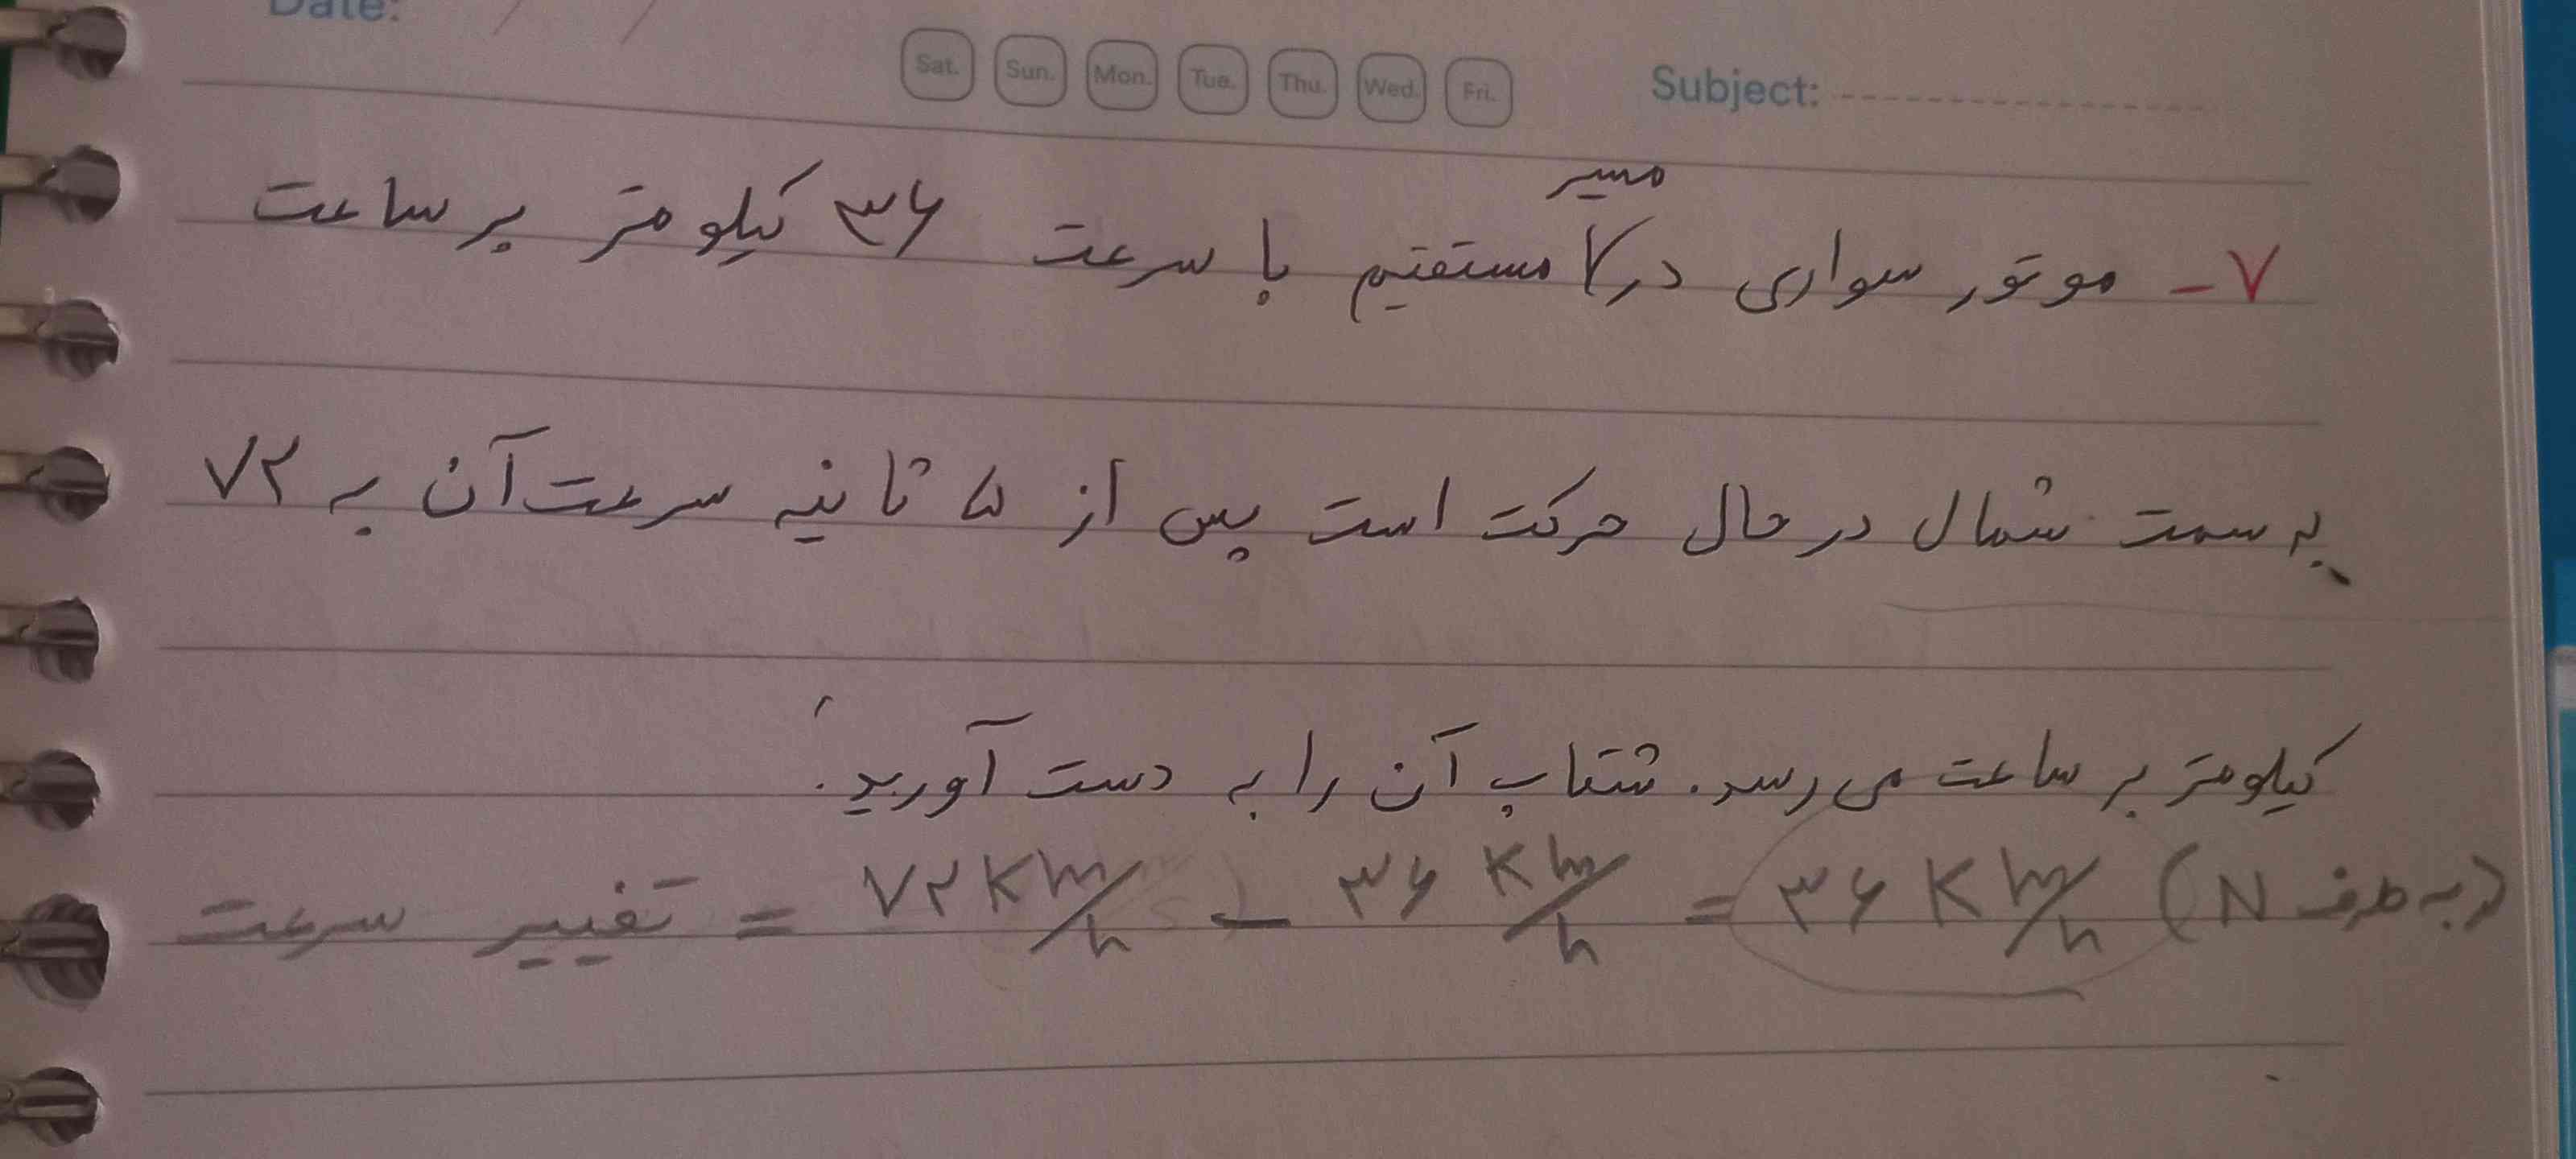 Date: / /
Sat. Sun. Mon. Tue. Thu. Wed. Fri.
Subject:
۷- موتور سواری در مسیر مستقیم با سرعت ۳۶ کیلومتر بر ساعت
به سمت شمال در حال حرکت است پس از ۵ ثانیه سرعت آن به ۷۲
کیلومتر بر ساعت می رسد. شتاب آن را به دست آورید.
تغییر سرعت = ۷۲ Km/h - ۳۶ Km/h = ۳۶ Km/h (به طرف N)